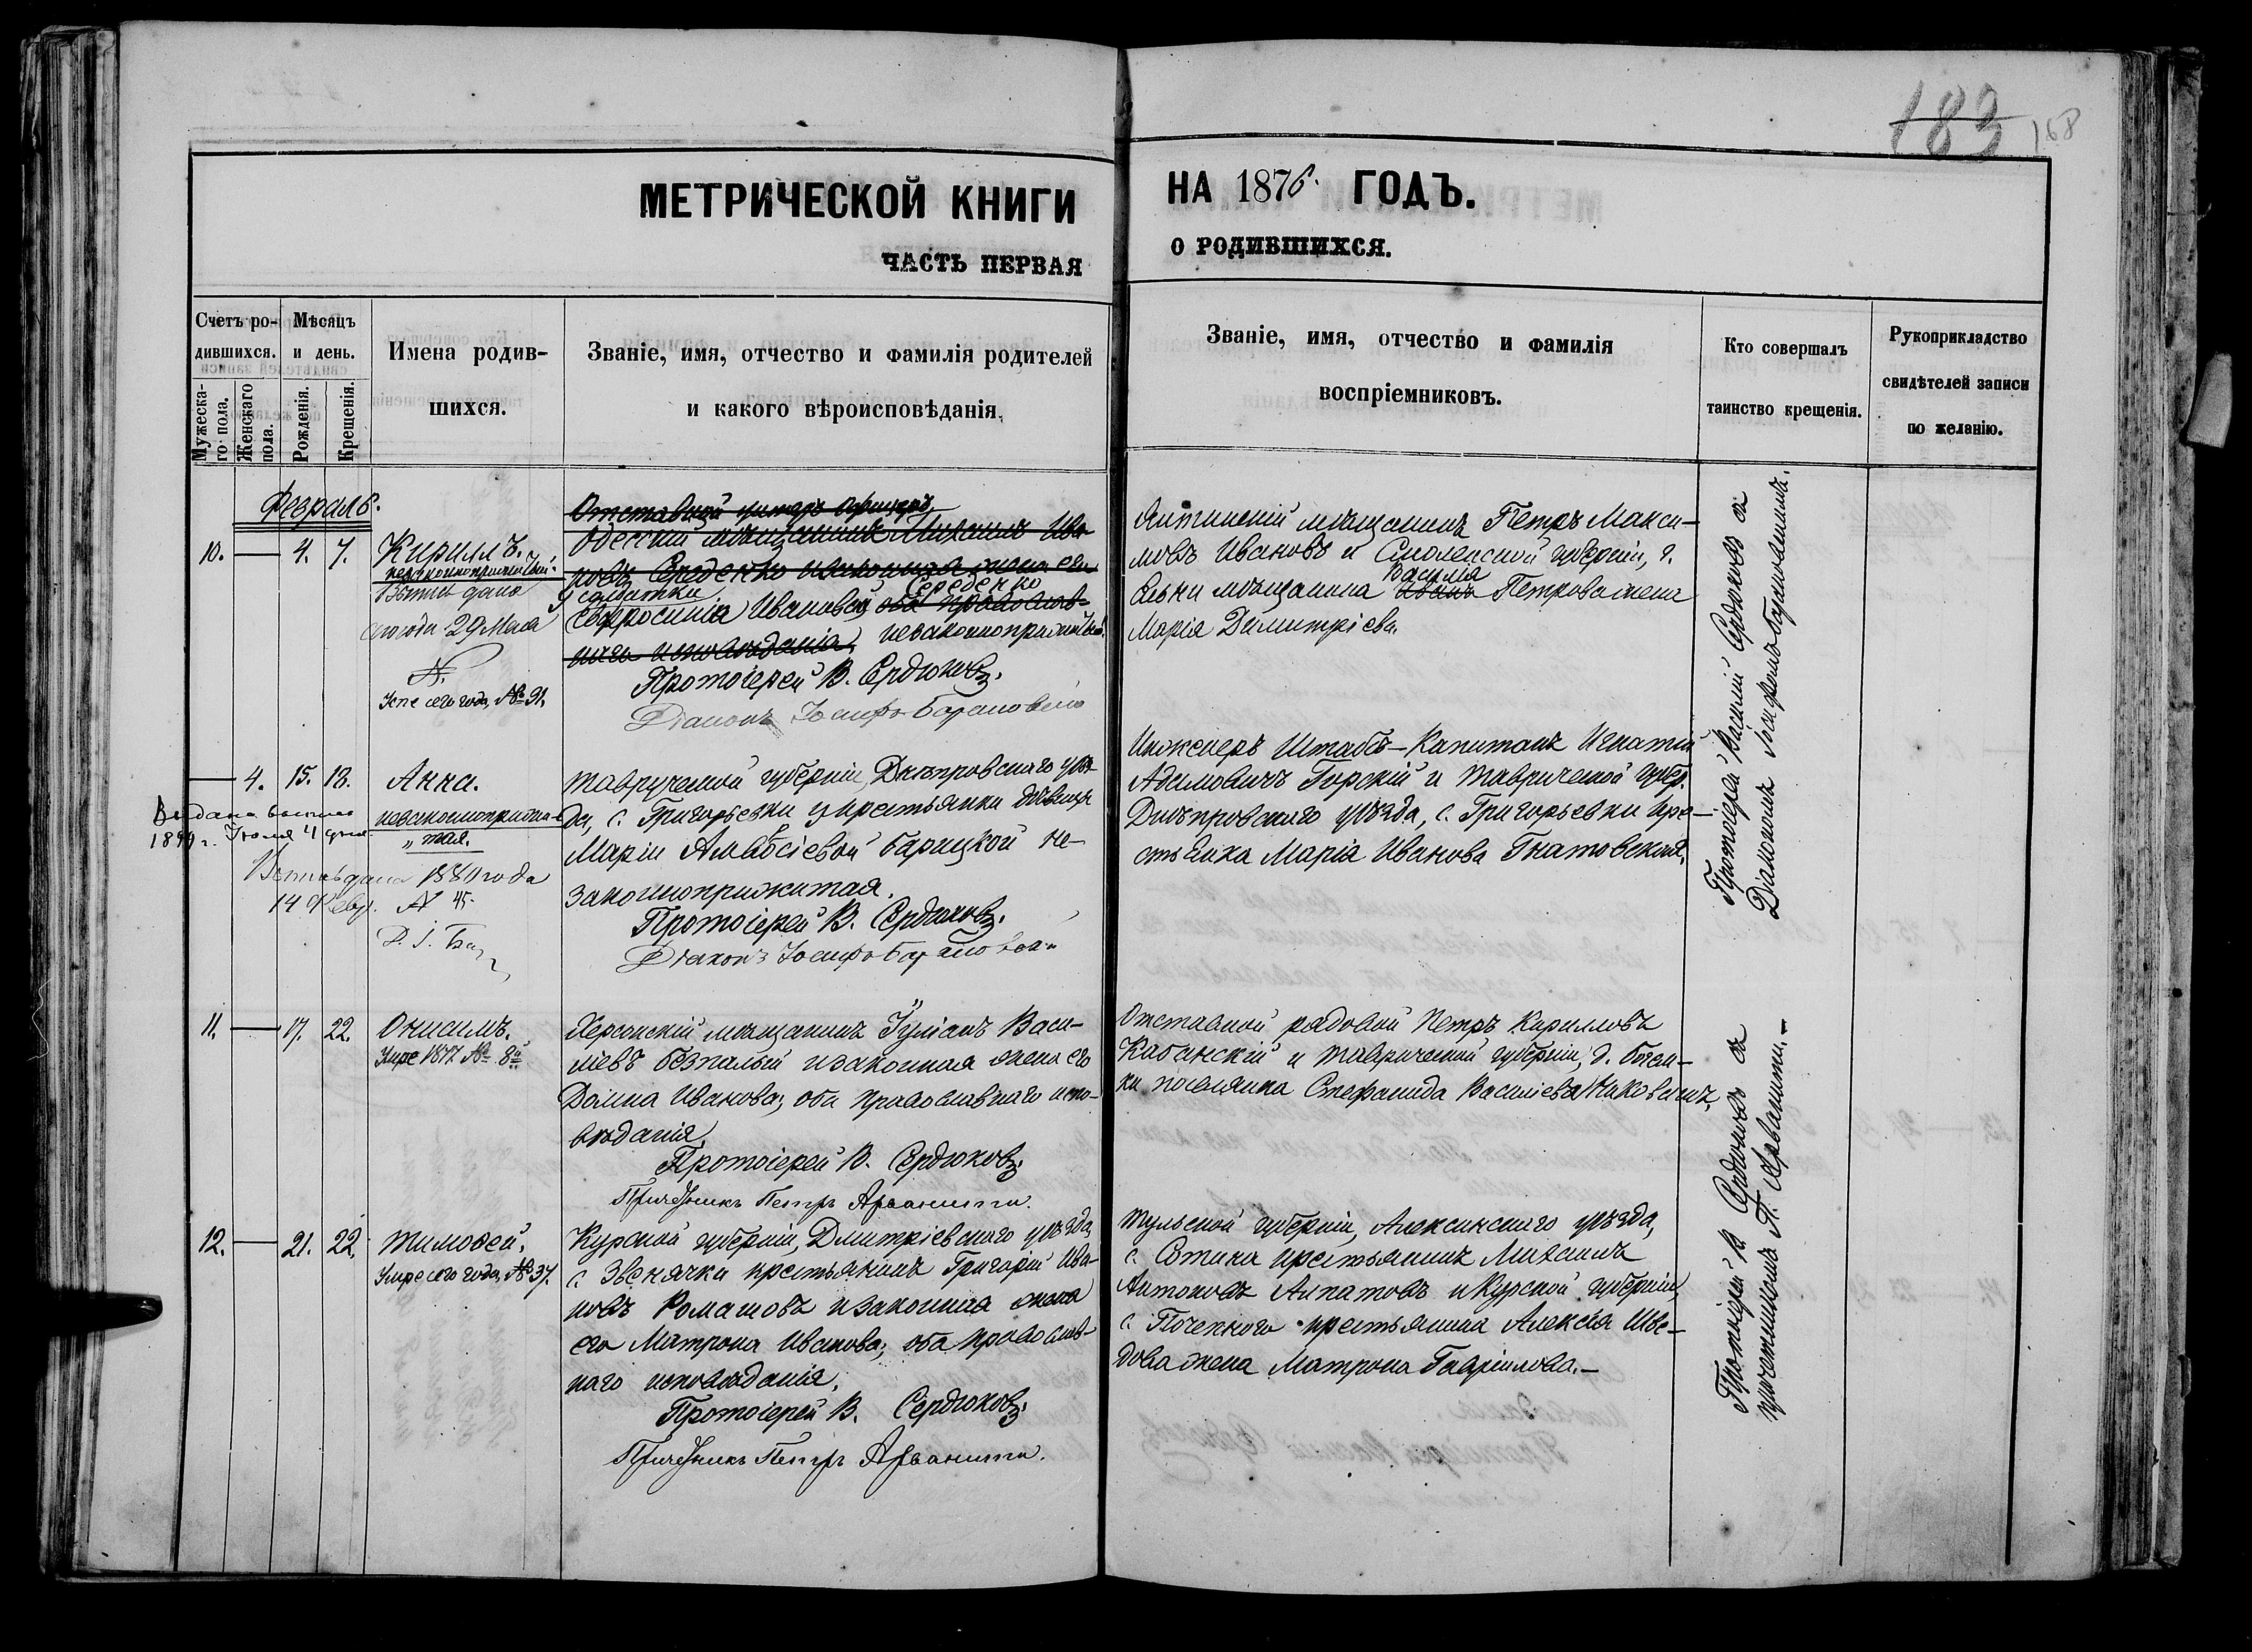 183 168
МЕТРИЧЕСКОЙ КНИГИ
НА 1876 ГОДЪ.
ЧАСТЬ ПЕРВАЯ
О РОДИВШИХСЯ.
Счетъ родившихся.
Мужескаго пола.
Женскаго пола.
Мѣсяцъ и день.
Рожденія.
Крещенія.
Имена родившихся.
Званіе, имя, отчество и фамилія родителей
и какого вѣроисповѣданія.
Званіе, имя, отчество и фамилія
воспріемниковъ.
Кто совершалъ
таинство крещенія.
Рукоприкладство
свидѣтелей записи
по желанію.
Февраль.
10. — 4. 7.
Кириллъ.
незаконноприжитый.
29 Мая
сего года, № 91.
Одесскій мѣщанинъ Михаилъ Ива-
новъ Середенко и законная жена его
У солдатки Середенко
Евфросинія Ивановой оба православ-
наго исповѣданія, незаконноприжитый.
Протоіерей В. Сердюковъ.
Діаконъ Іосифъ Барановичъ
Ялтинскій мѣщанинъ Петръ Макси-
мовъ Ивановъ и Смоленской губерніи, г.
Ельни мѣщанина Василія Иванъ Петрова жена
Марія Димитріева.
Протоіерей Василій Сердюковъ съ
Діакономъ Іосифомъ Барановичемъ.
— 4. 15. 18.
Анна.
незаконноприжи-
„тая.
Выдана выпись
1894 г. Іюля 4 дня
14 Февр. № 45
Таврической губерніи, Днѣпровскаго уѣз-
да, с. Григорьевки у крестьянки дѣвицы
Маріи Алексіевой не-
законноприжитая.
Протоіерей В. Сердюковъ.
Діаконъ Іосифъ
Инженеръ Штабсъ-Капитанъ Игнатій
Адамовичъ Горскій и Таврической губер.
Днѣпровскаго уѣзда, с. Григорьевки кре-
стьянка Марія Иванова Гнатовская.
11. — 17. 22.
Онисимъ.
Умре 1877 № 8й
Херсонскій мѣщанинъ Іуліанъ Васи-
ліевъ Безпалый и законная жена его
Домна Иванова; оба православнаго испо-
вѣданія.
Протоіерей В. Сердюковъ.
Причетникъ Петръ Арванити.
Отставной рядовой Петръ Кирилловъ
Кабанскій и Таврической губерніи, д.
поселянка Стефанида Василіева
Протоіерей В. Сердюковъ съ
причетникомъ П. Арванити.—
12. — 21. 22.
Тимоѳей.
Умре сего года, № 37.
Курской губерніи, Дмитріевскаго уѣзда,
с. Звенячки крестьянинъ Григорій Ива-
новъ Ромашовъ и законная жена
его Матрона Иванова; оба православ-
наго исповѣданія.
Протоіерей В. Сердюковъ.
Причетникъ Петръ Арванити.
Тульской губерніи, Алексинскаго уѣзда,
с. Сотина крестьянинъ Михаилъ
Антоновъ Алпатовъ и Курской губерніи
с. Почепного крестьянина Алексѣя Шве-
дова жена Матрона Гавріилова.—